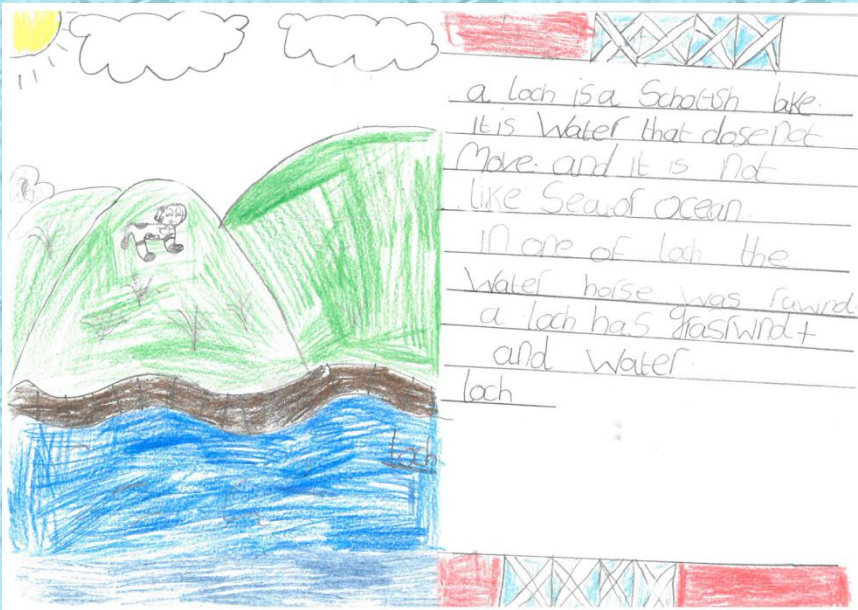 a loch is a Schotish lake.
it is Water that dose not
Move. and it is not
like Sea or ocean.
in one of loch the
Water horse was rawnd.
a loch has grasrwnd +
and Water.
loch
loch